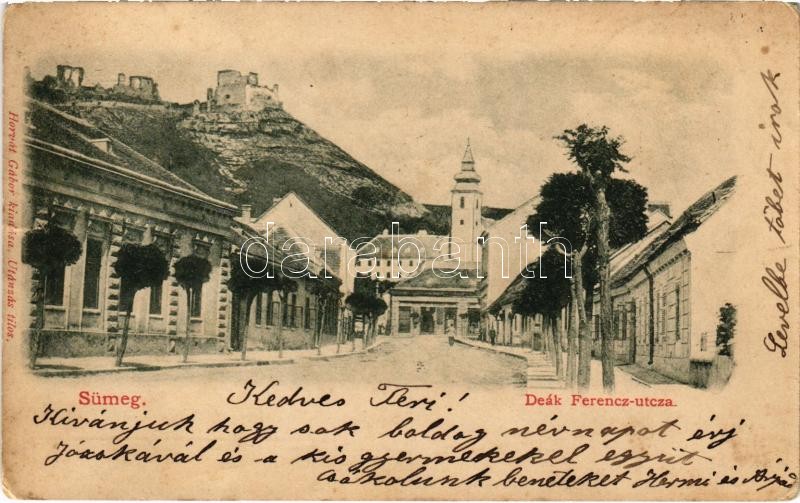 Horvát Gábor kiadása. Utánzás tilos.
darabanth
Sümeg.
Deák Ferencz-utcza.
Kedves Teri!
Kivánjuk hogy sok boldog névnapot érj
Józsokával és a kis gyermekekel együtt
csokolunk beneteket Hermi és
Levelbe többet irok